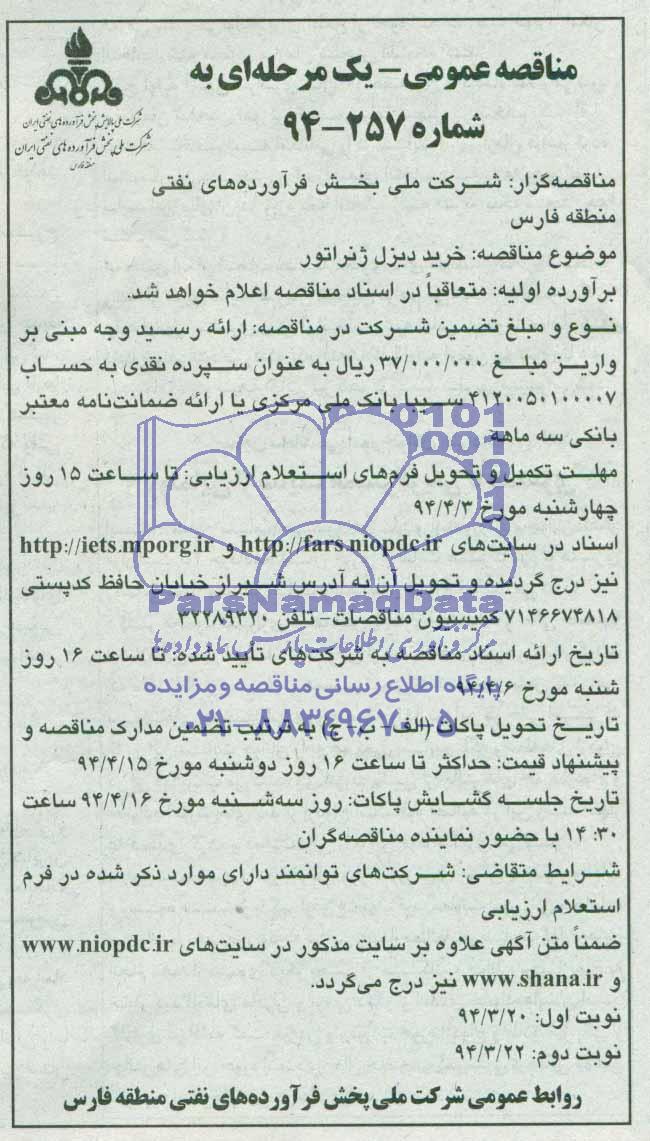 مناقصه عمومی – یک مرحله‌ای به
شماره ۲۵۷-۹۴
شرکت ملی پالایش پخش فرآورده‌های نفتی ایران
شرکت ملی پخش فرآورده‌های نفتی ایران
منطقه فارس
مناقصه‌گزار: شرکت ملی پخش فرآورده‌های نفتی
منطقه فارس
موضوع مناقصه: خرید دیزل ژنراتور
برآورده اولیه: متعاقباً در اسناد مناقصه اعلام خواهد شد.
نوع و مبلغ تضمین شرکت در مناقصه: ارائه رسید وجه مبنی بر
واریز مبلغ ۳۷/۰۰۰/۰۰۰ ریال به عنوان سپرده نقدی به حساب
۴۱۲۰۰۵۰۱۰۰۰۰۷ سیبا بانک ملی مرکزی یا ارائه ضمانت‌نامه معتبر
بانکی سه ماهه
مهلت تکمیل و تحویل فرم‌های استعلام ارزیابی: تا ساعت ۱۵ روز
چهارشنبه مورخ ۹۴/۴/۳
اسناد در سایت‌های http://fars.niopdc.ir و http://iets.mporg.ir
نیز درج گردیده و تحویل آن به آدرس شیراز خیابان حافظ کدپستی
ParsNamadData
۷۱۴۶۶۷۴۸۱۸ کمیسیون مناقصات- تلفن ۳۲۲۸۹۳۲۰
مرکز فرآوری اطلاعات پارس نماد داده‌ها
تاریخ ارائه اسناد مناقصه به شرکت‌های تأیید شده: تا ساعت ۱۶ روز
شنبه مورخ ۹۴/۴/۶
پایگاه اطلاع رسانی مناقصه و مزایده
تاریخ تحویل پاکات (الف- ب-ج) به ترتیب تضمین مدارک مناقصه و
۰۲۱-۸۸۳۴۹۶۷۰-۵
پیشنهاد قیمت: حداکثر تا ساعت ۱۶ روز دوشنبه مورخ ۹۴/۴/۱۵
تاریخ جلسه گشایش پاکات: روز سه‌شنبه مورخ ۹۴/۴/۱۶ ساعت
۱۴:۳۰ با حضور نماینده مناقصه‌گران
شرایط متقاضی: شرکت‌های توانمند دارای موارد ذکر شده در فرم
استعلام ارزیابی
ضمناً متن آگهی علاوه بر سایت مذکور در سایت‌های www.niopdc.ir
و www.shana.ir نیز درج می‌گردد.
نوبت اول: ۹۴/۳/۲۰
نوبت دوم: ۹۴/۳/۲۲
روابط عمومی شرکت ملی پخش فرآورده‌های نفتی منطقه فارس